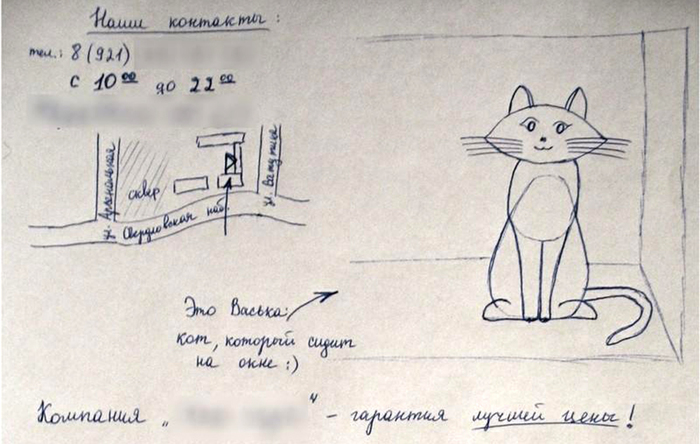 Наши контакты:
тел.: 8 (921)
с 10 00 до 22 00
ул. Арсенальная
сквер
ул. Ватутина
Свердловская наб.
Это Васька:
кот, который сидит
на окне :)
Компания „ " - гарантия лучшей цены!